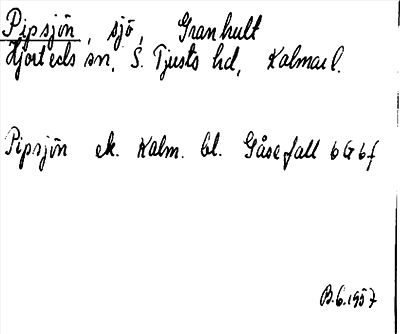 Pipsjön, sjö, Granhult
Hjorteds sn, S. Tjusts hd, Kalmar l.
Pipsjön ek. Kalm. bl. Gåsefall 6G6f
B.6.1957